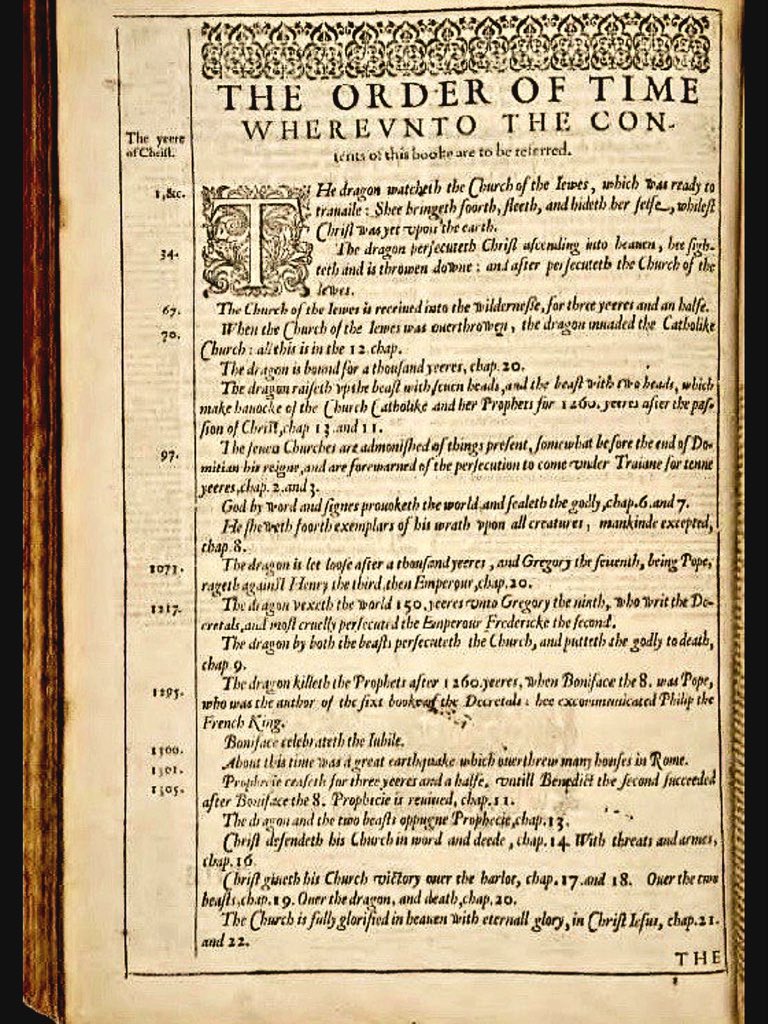 THE ORDER OF TIME
WHEREVNTO THE CON-
tents of this booke are to be referred.
The yeere
of Christ.
1,&c.
THe dragon watcheth the Church of the Iewes, which was ready to
trauaile: Shee bringeth foorth, fleeth, and hideth her selfe, whilest
Christ was yet vpon the earth.
34.
The dragon persecuteth Christ ascending into heauen, hee figh-
teth and is throwen downe: and after persecuteth the Church of the
Iewes.
67.
The Church of the Iewes is receiued into the wildernesse, for three yeeres and an halfe.
70.
When the Church of the Iewes was ouerthrowen, the dragon inuaded the Catholike
Church: all this is in the 12 chap.
The dragon is bound for a thousand yeeres, chap. 20.
The dragon raiseth vp the beast with seuen heads, and the beast with two heads, which
make hauocke of the Church Catholike and her Prophets for 1260. yeeres after the pas-
sion of Christ, chap 13. and 11.
97.
The seuen Churches are admonished of things present, somewhat before the end of Do-
mitian his reigne, and are forewarned of the persecution to come vnder Traiane for tenne
yeeres, chap. 2. and 3.
God by word and signes prouoketh the world, and sealeth the godly, chap. 6. and 7.
He sheweth foorth exemplars of his wrath vpon all creatures, mankinde excepted,
chap. 8.
1071.
The dragon is let loose after a thousand yeeres, and Gregory the seuenth, being Pope,
rageth against Henry the third, then Emperour, chap. 20.
1217.
The dragon vexeth the world 150. yeeres vnto Gregory the ninth, who writ the De-
cretals, and most cruelly persecuted the Emperour Fredericke the second.
The dragon by both the beasts persecuteth the Church, and putteth the godly to death,
chap 9.
1295.
The dragon killeth the Prophets after 1260. yeeres, when Boniface the 8. was Pope,
who was the author of the sixt booke of the Decretals: hee excommunicated Philip the
French King.
1300.
Boniface celebrateth the Iubile.
1301.
About this time was a great earthquake which ouerthrew many houses in Rome.
1305.
Prophecie ceaseth for three yeeres and a halfe, vntill Benedict the second succeeded
after Boniface the 8. Prophecie is reuiued, chap. 11.
The dragon and the two beasts oppugne Prophecie, chap. 13.
Christ defendeth his Church in word and deede, chap. 14. With threats and armes,
chap. 16
Christ giueth his Church victory ouer the harlot, chap. 17. and 18. Ouer the two
beasts, chap. 19. Ouer the dragon, and death, chap. 20.
The Church is fully glorified in heauen with eternall glory, in Christ Iesus, chap. 21.
and 22.
THE